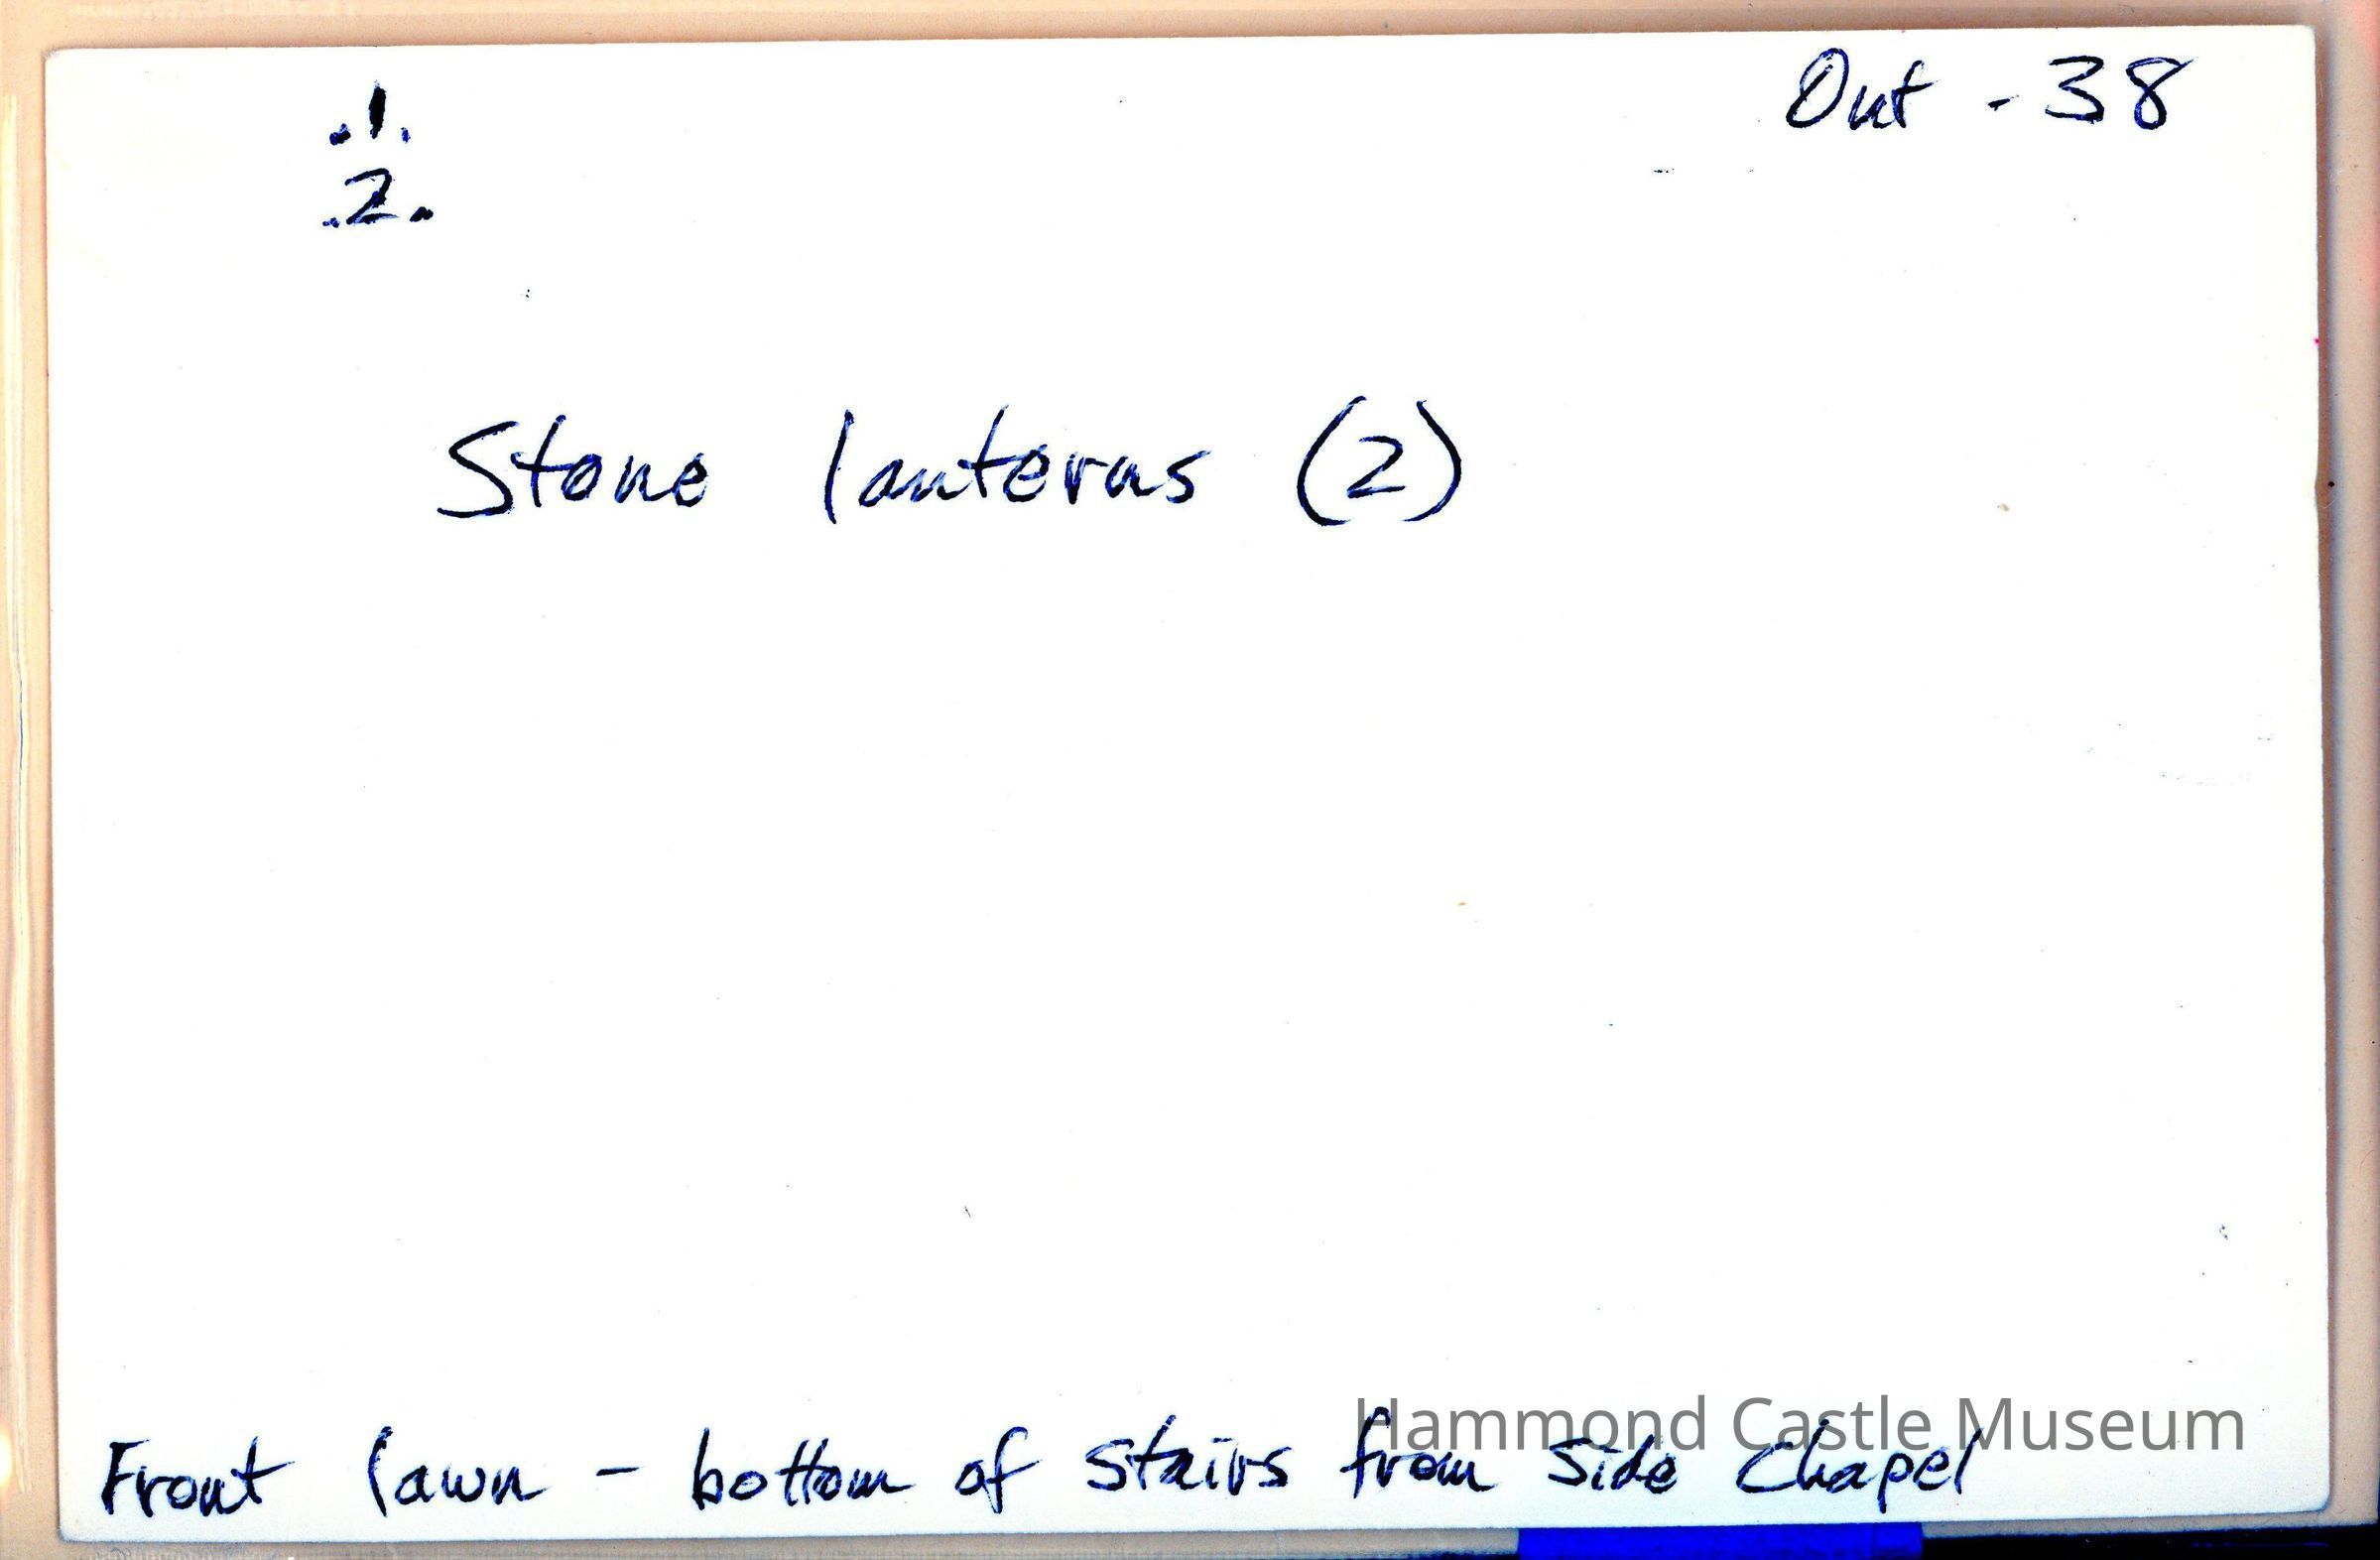 .1.
.2.
Out - 38
Stone lanterns (2)
Hammond Castle Museum
Front lawn - bottom of stairs from side chapel